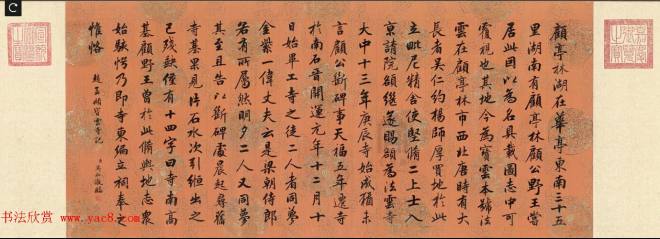 顧亭林湖在華亭東南三十五
里湖南有顧亭林顧公野王嘗
居此因以為名具載圖志中可
覆視也其地今為寶雲本號法
雲在顧亭林市西北唐時有大
長者吳仁約楊師厚買地於此
立毗尼精舍使堅脩二上士入
京請院額繼遂賜額為法雲寺
大中十三年庚辰寺始成猶未
言顧公斷碑事天福五年遷寺
於南石晉開運元年十二月十
日始畢工寺之徒二人者同夢
金紫一偉丈夫云是梁朝侍郎
若有所屬然明夕二人又同夢
其至且告以斷碑處晨起尋舊
寺基果見片石水次引絙出之
已殘缺僅有十四字曰寺南高
基顧野王曾於此脩輿地志眾
始駭愕乃即寺東偏立祠奉之
惟恪
趙孟頫寶雲寺記
书法欣赏 www.yac8.com